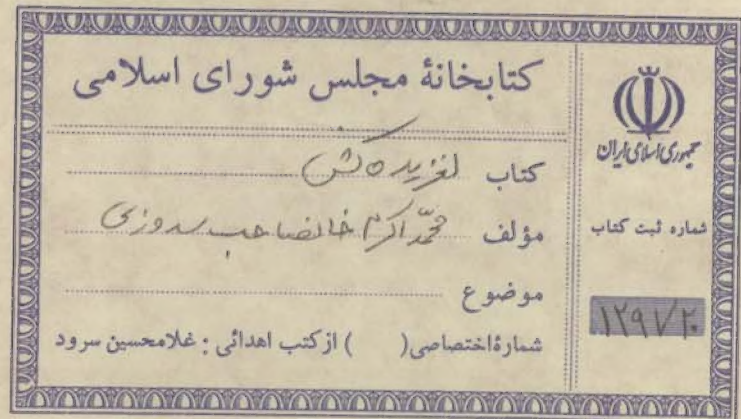 کتابخانهٔ مجلس شورای اسلامی
کتاب لغزیده کش
مؤلف محمّد اکرم خانصاحب سدوزی
موضوع
شمارهٔ اختصاصی ( ) از کتب اهدائی : غلامحسین سرود
جمهوری اسلامی ایران
شماره ثبت کتاب
۱۲۹۱۷۲۰